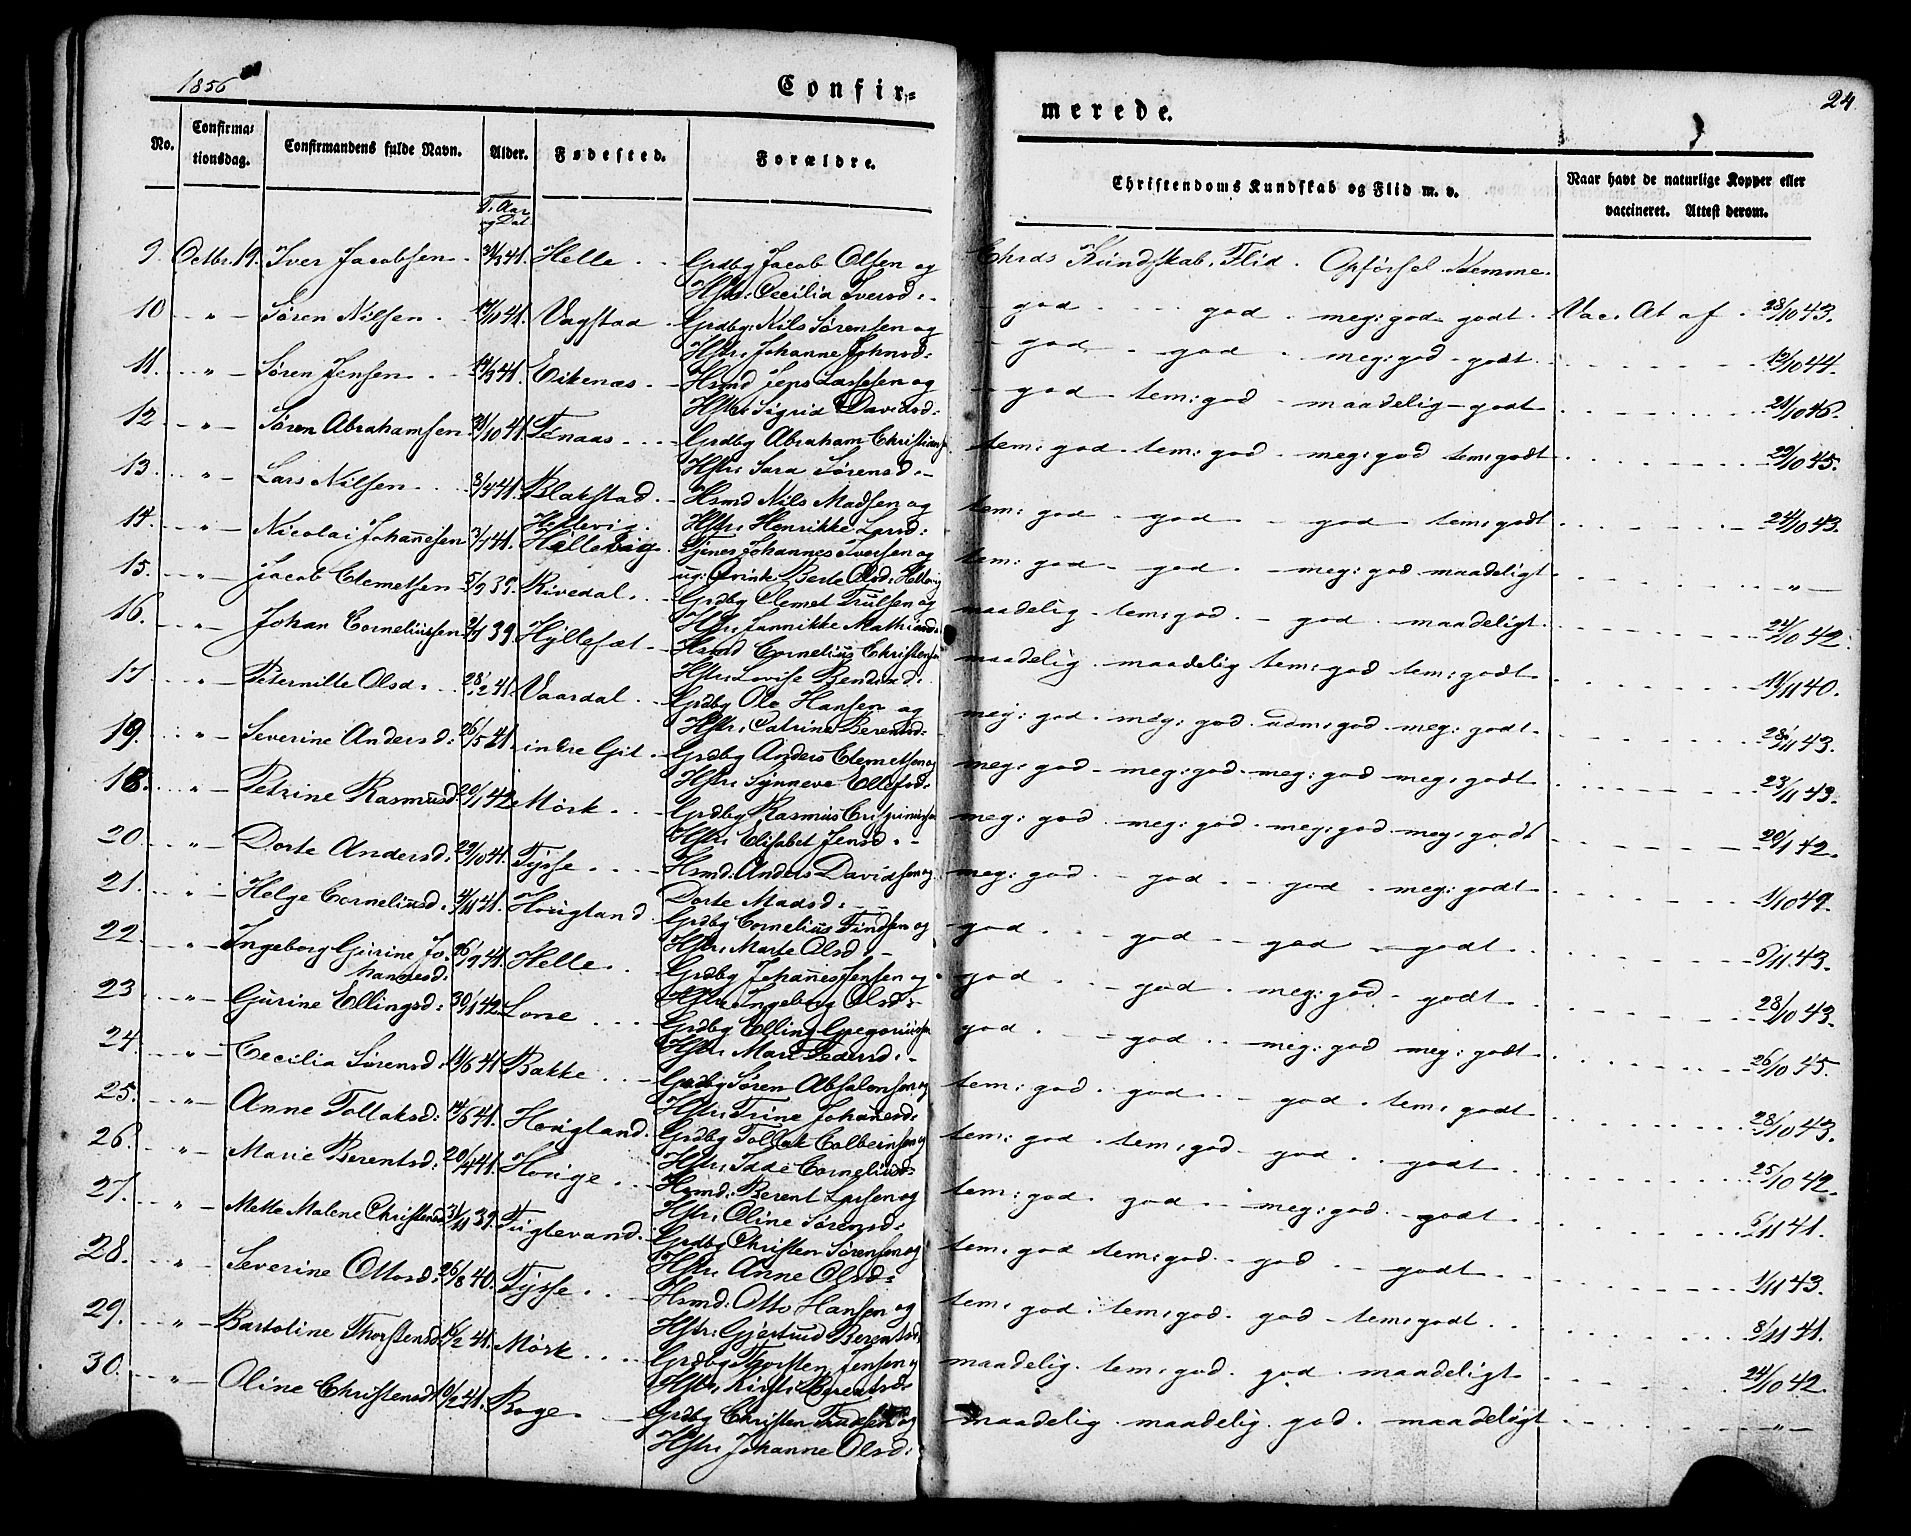 1856
Confir=
merede.
24
No.
Confirma=
tionsdag.
Confirmandens fulde Navn.
Alder.
Fødested.
Forældre.
Christendoms Kundskab og Flid m. v.
Naar havt de naturlige Kopper eller
vaccineret. Attest derom.
Chrds Kundskab, Flid. Opførsel Nemme.
9. Octbr. 19. Iver Jacobsen 41. Helle Grdbg Jacob Olsen og
Hstr: Cecilia Iversd:
god god meg: god godt Vac. At af 28/10 43.
10 " Søren Nilsen Vagstad Grdbg: Nils Sørensen og
Hstr: Johanne Johnsd:
god god meg: god godt 12/10 44.
11. " Søren Jensen 41. Eikenæs Hsmd Jens Larsen og
Hstr: Sigrid Davidsd:
god tem: god maadelig godt 21/10 46.
12 " Søren Abrahamsen 31/10 41. Tenaas Grdbg Abraham Christians
Hstr: Sara Sørensd:
tem: god tem: god meg: god tem: godt 29/10 45.
13. " Lars Nilsen 3/4 41. Blakstad Hsmd Nils Madsen og
Hstr: Henrikke Larsd:
tem: god god god tem: godt 24/10 43.
14. " Nicolai Johanesen 41. Hellevig Tjener Johannes Iversen og
ug: Qvinde Berte Olsd: Hellevig
tem: god god meg: god maadeligt "
15. " Jacob Clemetsen 5/9 39. Rivedal Grdbg Clemet Trulsen og
Hstr: Jannikke Mathiasd:
maadelig tem: god god maadeligt 24/10 42.
16. " Johan Corneliussen 39. Hyllesæt Hsmd Cornelius Christensen
Hstr: Lovise Bendixd:
maadelig maadelig tem: god tem: godt 11/11 40.
17 " Peternille Olsd: 28/2 41. Vaardal Grdbg Ole Hansen og
Hstr: Catrine Berentsd:
meg: god meg: god udm: god meg: godt 28/11 43.
19. " Severine Andersd: 26/5 41. indre Git Grdbg Anders Clemetsen og
Hstr: Synneve Ellefsd:
meg: god meg: god meg: god meg: godt 23/11 43.
18. " Petrine Rasmusd: 20/1 42 Mørk Grdbg Rasmus
Hstr: Elisabet Jensd:
meg: god meg: god meg: god meg: godt 29/1 42.
20 " Dorte Andersd: 29/10 41. Tysse Hsmd: Anders Davidsen og
Dorte Madsd:
meg: god god god meg: godt 1/10 49.
21. " Helge Corneliusd. 4/11 41. Hougland Grdbg Cornelius Findsen og
Hstr: Marte Olsd:
god god god godt 6/11 43.
22 " Ingeborg Gurine Jo=
hannesd: 26/9 41. Helle Grdbg Johanes Jensen og
Hstr: Ingeborg Olsd:
god god meg: god godt 28/10 43.
23 " Gurine Ellingsd: 30/1 42 Lone Grdbg Elling Gregoriussen
Hstr: Mari Pedersd:
god god meg: god meg: godt 26/10 45.
24. " Cecilia Sørensd: 11/6 41 Bakke Grdbg Søren Absalonsen og
Hstr: Trine Johanesd:
tem: god god god tem: godt 28/10 43.
25. " Anne Tollaksd: 14/6 41. Hougland Grdbg Tollak Colbeinsen og
Hstr: Idde Corneliusd:
tem: god tem: god god godt 25/10 42.
26. " Marie Berentsd: 20/4 41. Houge Hsmd: Berent Larsen og
Hstr: Oline Sørensd:
tem: god god meg: god godt 6/11 41.
27. " Mette Malene Christensd 3/11 39. Tuglevand Grdbg Christen Sørensen og
Hstr: Anne Olsd:
tem: god tem: god god godt 1/11 43.
28. " Severine Ottosd: 26/8 40. Tysse Hsmd: Otto Hansen og
Hstr: Gjertrud Berentsd:
tem: god tem: god god tem: godt 8/11 41.
29. " Bartoline Thorstensd: 6/2 41. Mørk Grdbg Thorsten Jensen og
Hstr: Kirsti Berentsd:
maadelig tem: god god maadeligt 24/10 42.
30. " Oline Christensd: 10/2 41. Boge Grdbg Christen og
Hstr: Johanne Olsd:
maadelig maadelig god maadeligt "